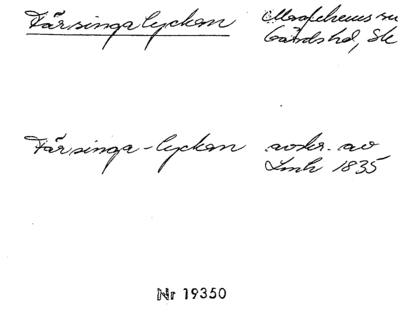 Färsingalyckan
Maglehems sn
Gärds hd, Sk
Färsinga-lyckan
avskr. av
Lmh 1835
Nr 19350